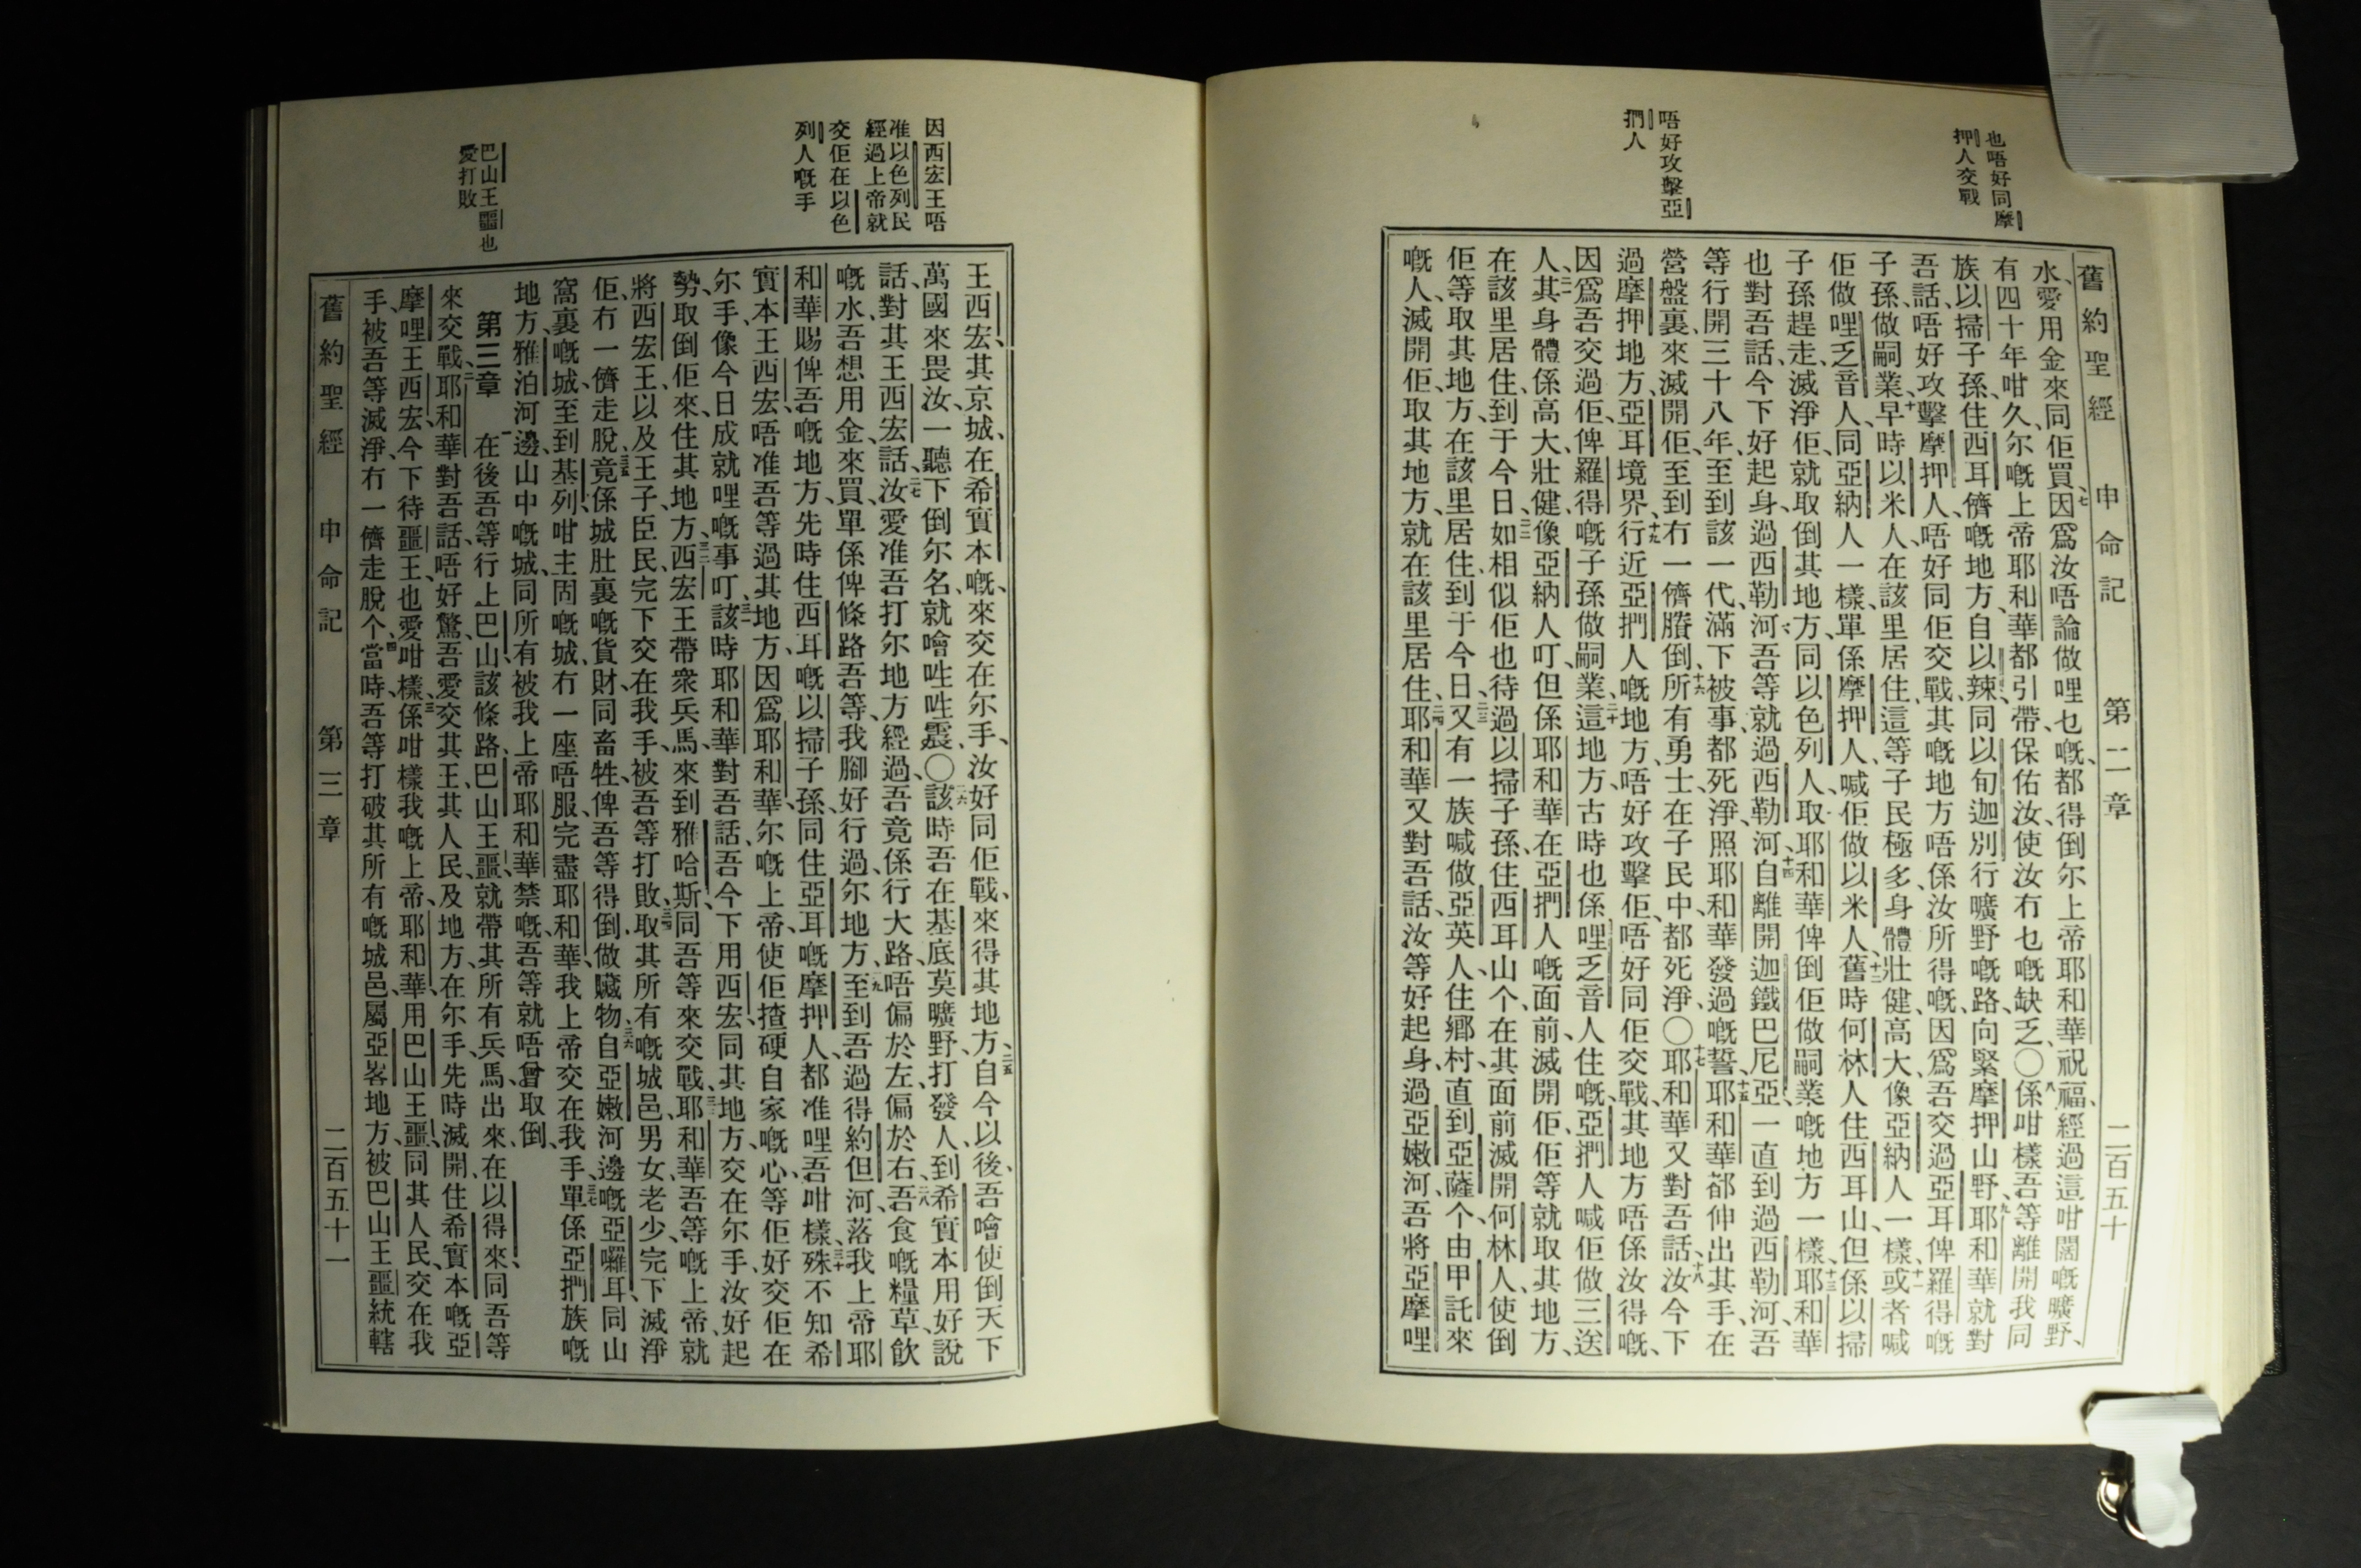 舊約聖經 申命記 第二章 二百五十
也唔好同摩
押人交戰
唔好攻擊亞
捫人
水、愛用金來同佢買、七因爲汝唔論做哩乜嘅、都得倒尔上帝耶和華祝福、經過這咁闊嘅曠野、
有四十年咁久、尔嘅上帝耶和華都引帶、保佑汝、使汝冇乜嘅缺乏、〇八係咁樣吾等離開我同
族以掃子孫住西耳儕嘅地方、自以辣、同以旬迦別行曠野嘅路、向緊摩押山野、九耶和華就對
吾話、唔好攻擊摩押人、唔好同佢交戰、其嘅地方唔係汝所得嘅、因爲吾交過亞耳俾羅得嘅
子孫做嗣業、十早時以米人、在該里居住、這等子民極多、身體壯健、高大、像亞納人一樣、十一或者喊
佢做哩乏音人、同亞納人一樣、單係摩押人、喊佢做以米人、十二舊時何林人住西耳山、但係以掃
子孫趕走、滅淨佢、就取倒其地方、同以色列人取耶和華俾倒佢做嗣業嘅地方一樣、十三耶和華
也對吾話、今下好起身、過西勒河、吾等就過西勒河、十四自離開迦鐵巴尼亞、一直到過西勒河、吾
等行開三十八年、至到該一代、滿下被事都死淨、照耶和華發過嘅誓、十五耶和華都伸出其手、在
營盤裏、來滅開佢、至到冇一儕賸倒、十六所有勇士在子民中、都死淨、〇十七耶和華又對吾話、十八汝今下
過摩押地方、亞耳境界、十九行近亞捫人嘅地方、唔好攻擊佢、唔好同佢交戰、其地方唔係汝得嘅、
因爲吾交過佢、俾羅得嘅子孫做嗣業、二十這地方古時也係哩乏音人住嘅、亞捫人喊佢做三送
人、二一其身體係高大、壯健、像亞納人叮、但係耶和華在亞捫人嘅面前、滅開佢、佢等就取其地方、
在該里居住、到于今日、二二如相似佢也待過以掃子孫、住西耳山个、在其面前滅開何林人、使倒
佢等取其地方、在該里居住、到于今日、二三又有一族喊做亞英人、住鄉村、直到亞薩个、由甲託來
嘅人、滅開佢、取其地方、就在該里居住、二四耶和華又對吾話、汝等好起身、過亞嫩河、吾將亞摩哩
因西宏王唔
准以色列民
經過上帝就
交佢在以色
列人嘅手
巴山王噩也
愛打敗
王西宏、其京城、在希實本嘅、來交在尔手、汝好同佢戰、來得其地方、二五自今以後、吾噲使倒天下
萬國來畏汝、一聽下倒尔名、就噲㖷㖷震、〇二六該時吾在基底莫曠野、打發人、到希實本用好說
話、對其王西宏話、二七汝愛准吾打尔地方經過、吾竟係行大路、唔偏於左、偏於右、二八吾食嘅糧草、飲
嘅水、吾想用金、來買、單係俾條路吾等、我腳好行過、尔地方、二九至到吾過得約但河、落我上帝耶
和華賜俾吾嘅地方、先時住西耳嘅以掃子孫、同住亞耳嘅摩押人、都准哩吾咁樣、三十殊不知希
實本王西宏、唔准吾等過其地方、因爲耶和華、尔嘅上帝、使佢揸硬自家嘅心、等佢好交佢在
尔手、像今日成就哩嘅事叮、三一該時耶和華對吾話、吾今下用西宏、同其地方、交在尔手、汝好起
勢、取倒佢來、住其地方、三二西宏王帶衆兵馬、來到雅哈斯、同吾等來交戰、三三耶和華吾等嘅上帝就
將西宏王、以及王子、臣民、完下交在我手、被吾等打敗、三四取其所有嘅城邑、男女、老少、完下滅淨
佢、冇一儕走脫、三五竟係城肚裏嘅貨財、同畜牲、俾吾等得倒、做贓物、三六自亞嫩河邊嘅亞囉耳、同山
窩裏嘅城、至到基列、咁主固嘅城、冇一座唔服、完盡耶和華、我上帝交在我手、三七單係亞捫族嘅
地方、雅泊河邊、山中嘅城、同所有被我上帝耶和華禁嘅、吾等就唔曾取倒、
第三章 一在後吾等行上巴山、該條路、巴山王噩、就帶其所有兵馬出來、在以得來、同吾等
來交戰、二耶和華對吾話、唔好驚、吾愛交其王、其人民、及地方、在尔手、先時滅開住希實本嘅亞
摩哩王西宏、今下待噩王、也愛咁樣、三係咁樣我嘅上帝、耶和華、用巴山王噩、同其人民、交在我
手、被吾等滅淨、冇一儕走脫个、四當時、吾等打破其所有嘅城邑、屬亞畧地方、被巴山王噩統轄
舊約聖經 申命記 第三章 二百五十一